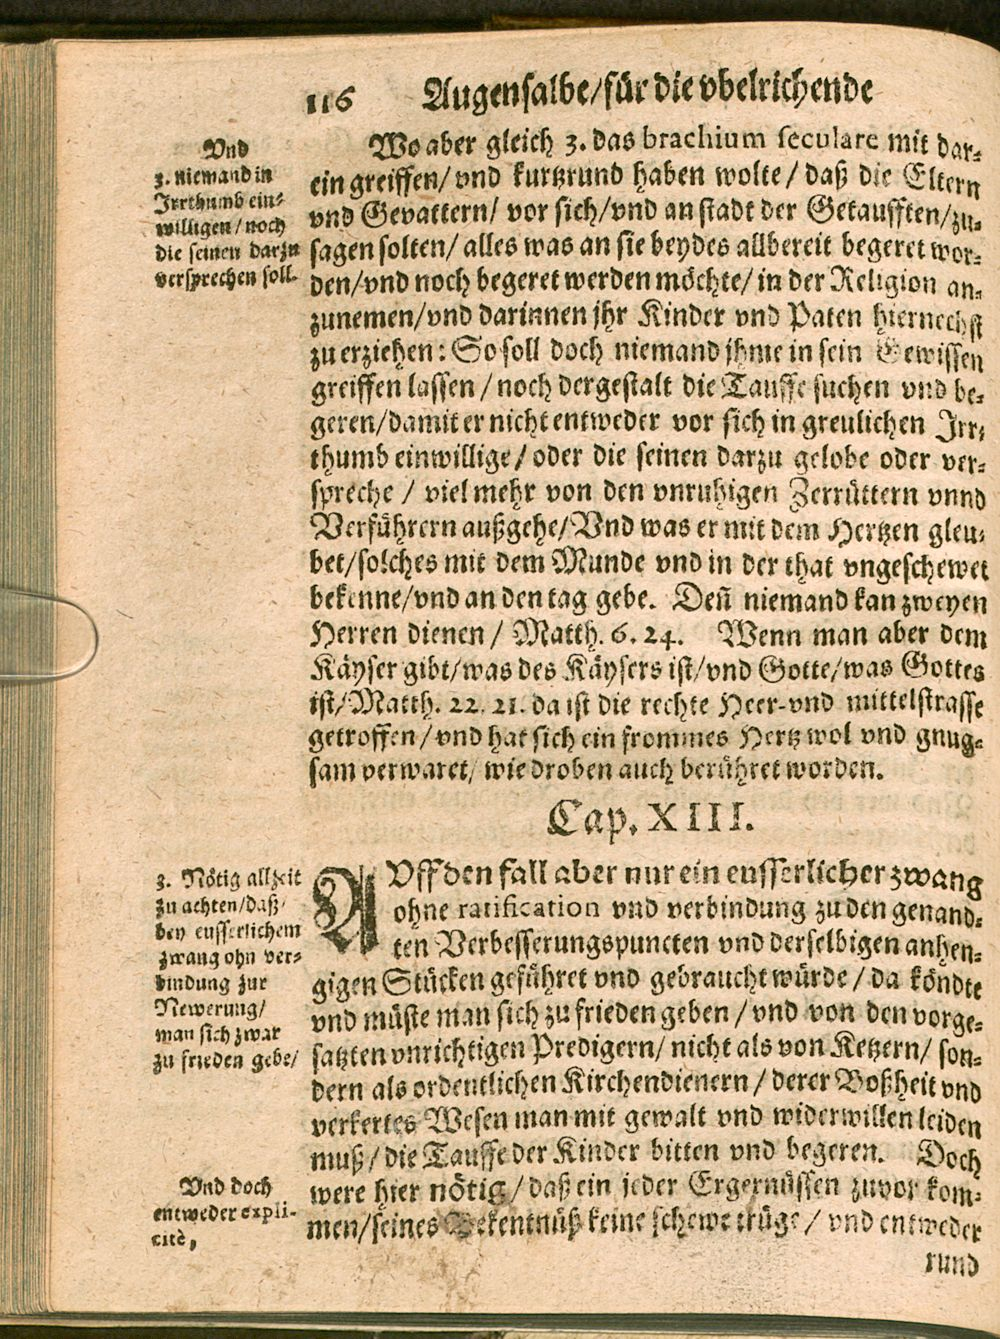 116 Augensalbe/für die vbelrichende
Vnd
3. niemand in
Irrthumb ein-
willigen/noch
die seinen darzu
versprechen soll.
Wo aber gleich 3. das brachium seculare mit dar-
ein greiffen/vnd kurtzrund haben wolte/daß die Eltern
vnd Gevattern/vor sich/vnd an stadt der Getaufften/zu-
sagen solten/alles was an sie beydes allbereit begeret wor-
den/vnd noch begeret werden möchte/in der Religion an-
zunemen/vnd darinnen jhr Kinder vnd Paten hiernechst
zu erziehen: So soll doch niemand jhme in sein Gewissen
greiffen lassen/noch dergestalt die Tauffe suchen vnd be-
geren/damit er nicht entweder vor sich in greulichen Irr-
thumb einwillige/oder die seinen darzu gelobe oder ver-
spreche/viel mehr von den vnruhigen Zerrüttern vnnd
Verführern außgehe/Vnd was er mit dem Hertzen gleu-
bet/solches mit dem Munde vnd in der that vngeschewet
bekenne/vnd an den tag gebe. Deñ niemand kan zweyen
Herren dienen/Matth. 6. 24. Wenn man aber dem
Käyser gibt/was des Käysers ist/vnd Gotte/was Gottes
ist/Matth. 22. 21. da ist die rechte Heer-vnd mittelstrasse
getroffen/vnd hat sich ein frommes Hertz wol vnd gnug-
sam verwaret/wie droben auch berühret worden.
Cap. XIII.
3. Nötig allzeit
zu achten/daß/
bey eusserlichem
zwang ohn ver-
bindung zur
Newerung/
man sich zwar
zu frieden gebe/
AVff den fall aber nur ein eusserlicher zwang
ohne ratification vnd verbindung zu den genand-
ten Verbesserungspuncten vnd derselbigen anhen-
gigen Stücken geführet vnd gebraucht würde/da köndte
vnd müste man sich zu frieden geben/vnd von den vorge-
satzten vnrichtigen Predigern/nicht als von Ketzern/son-
dern als ordentlichen Kirchendienern/derer Boßheit vnd
verkertes Wesen man mit gewalt vnd widerwillen leiden
muß/die Tauffe der Kinder bitten vnd begeren. Doch
were hier nötig/daß ein jeder Ergernüssen zuvor kom-
men/seines Bekentnüß keine schewe trüge/vnd entweder
Vnd doch
entweder expli-
citè,
rund